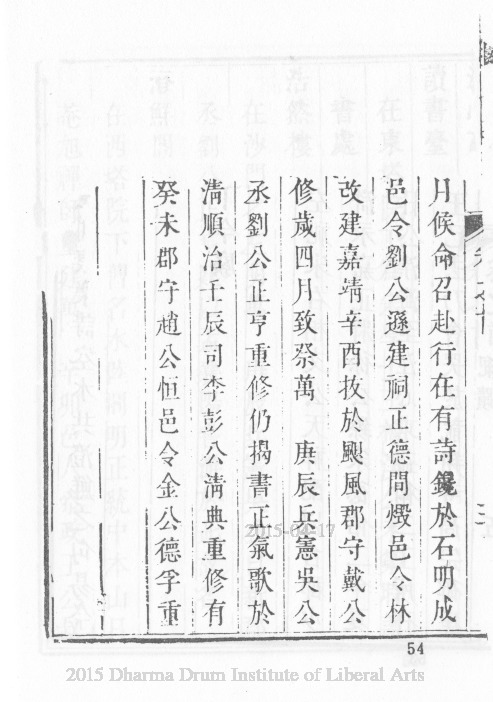 月候命召赴行在有詩鑱於石明成
邑令劉公遜建祠正德間燬邑令林
改建嘉靖辛酉㧞於颶風郡守戴公
修歲四月致祭萬 庚辰兵憲吳公
丞劉公正亨重修仍揭書正氣歌於
清順治壬辰司李彭公清典重修有
癸未郡守趙公恒邑令金公德孚重
54
2015-04-17
2015 Dharma Drum Institute of Liberal Arts